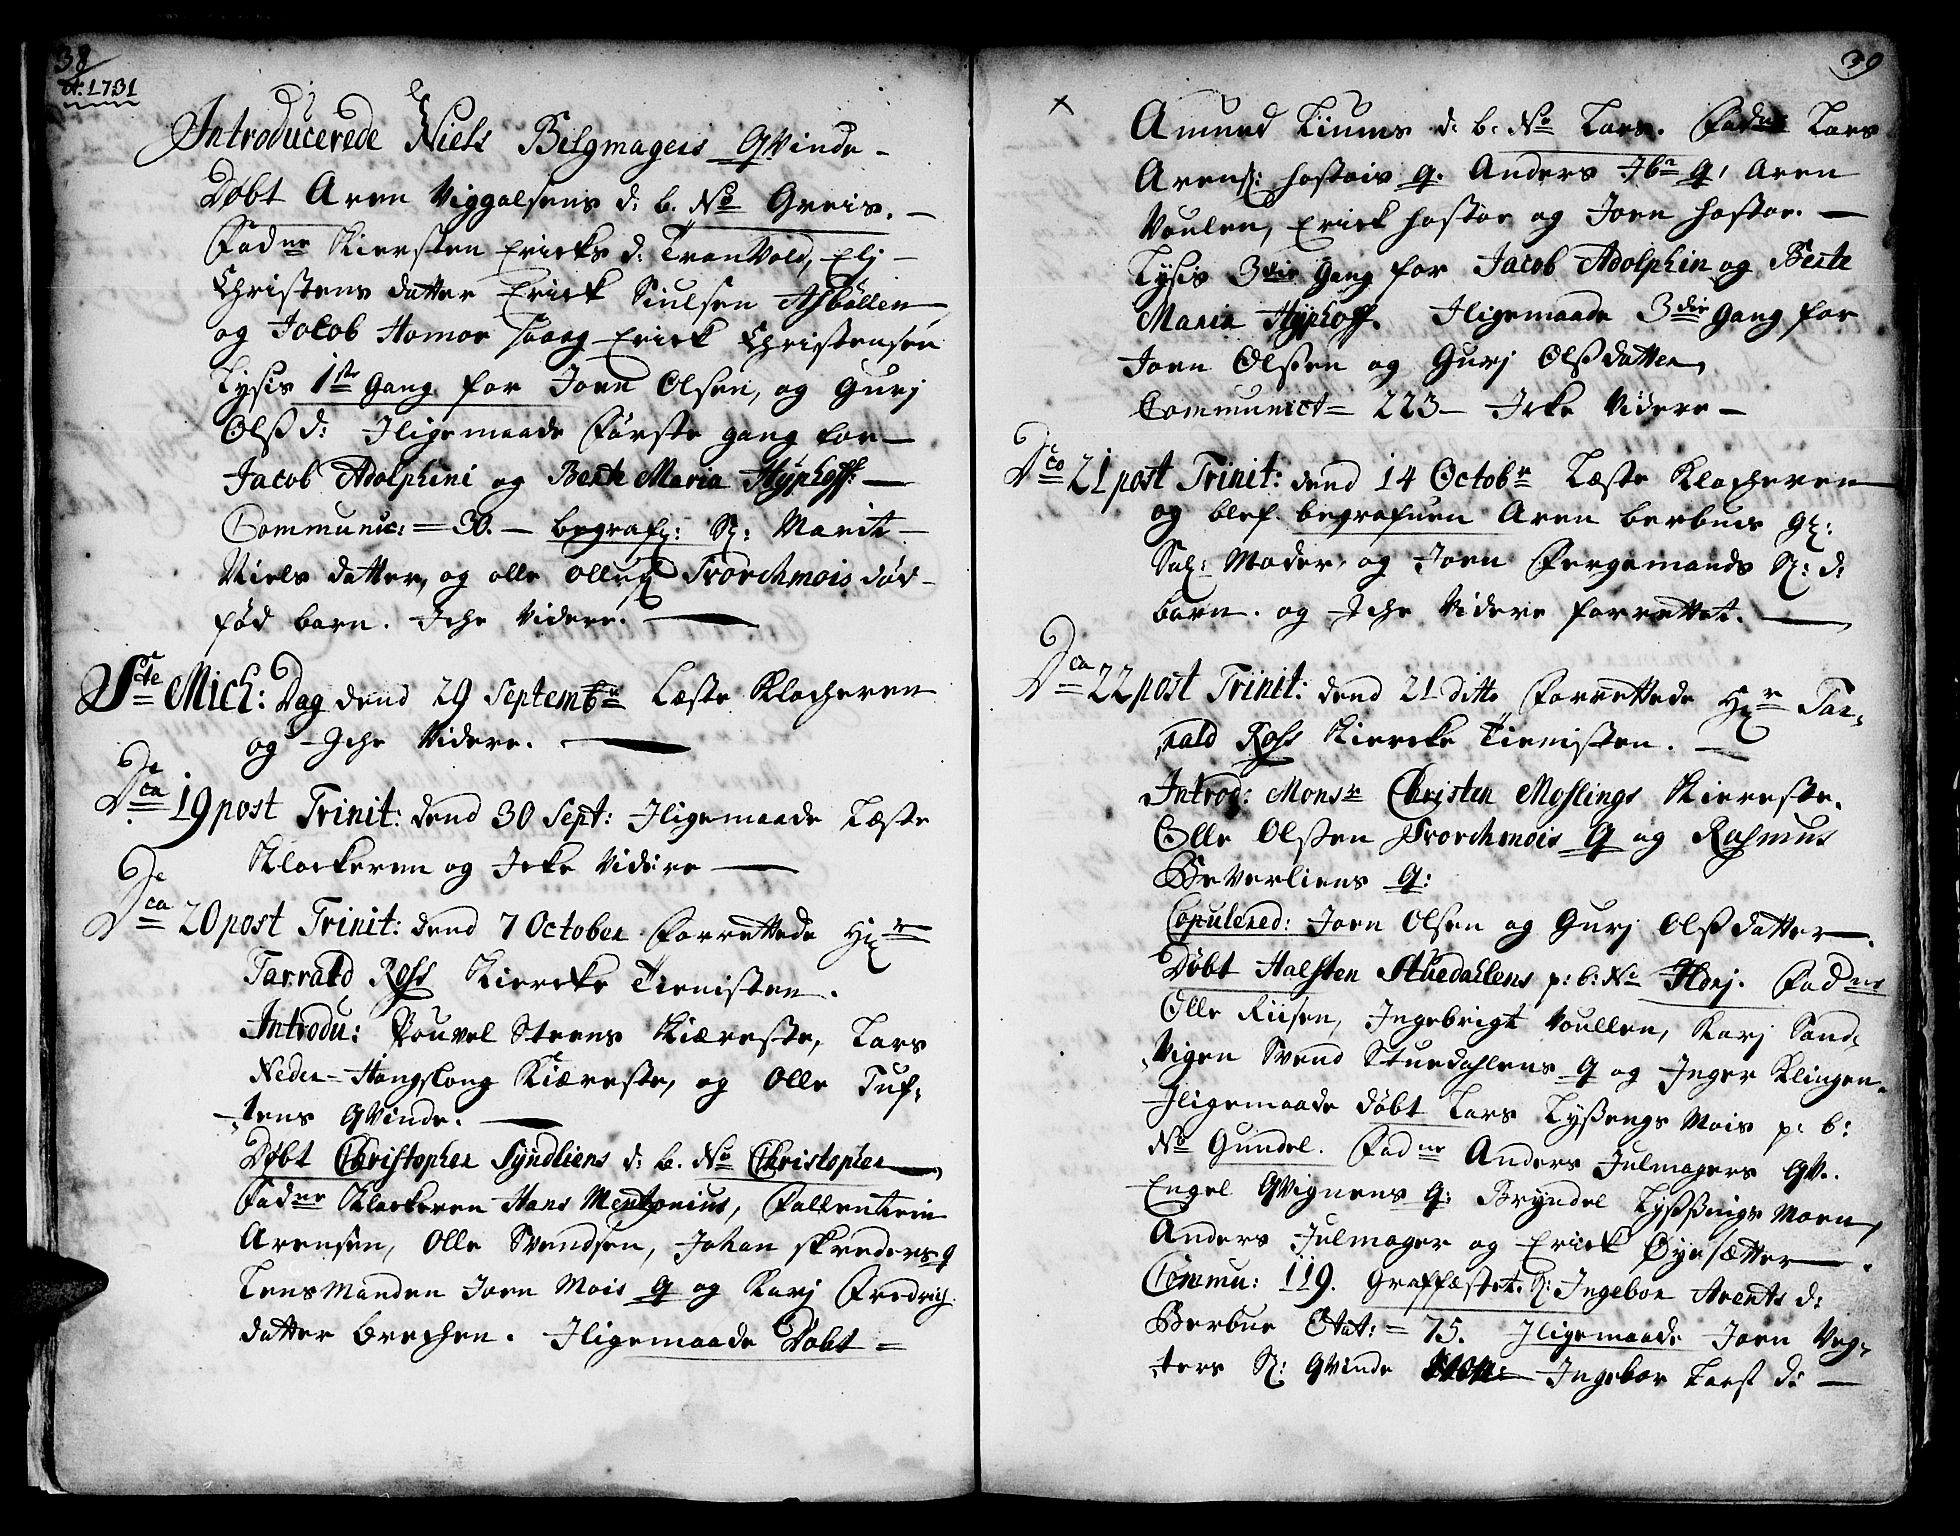 38
A: 1731
Introducerede Niels Belgmagers QVinde –
Døbt Aren Viggalsens d: b. No Greis. –
Fadne Kiersten Ericks d: TranVold, Elj –
Christens datter Erick Siulsen Aasbøllen
og Jocob Homor Erick Christensen
Lysis 1ste Gang for Joen Olsen, og Gurj
Olsd: Iligemaade Første gang for –
Jacob Adolphini og Berte Maria Hyphoff. –
Communic: = 30. – begrafu: Sl: Marit –
Niels datter, og olle ollss Trorchmois død-
fød barn. Iche Videre. –
Ste Mich: Dag dend 29 Septembr Læste Klocheren
og Iche Videre. –
Dca 19 post Trinit: dend 30 Sept: Iligemaade Læste
Klockeren og Icke Videre –
Dca 20 post Trinit: dend 7 October Forrettede Hr
Tarrald Ross Kiercke Tienisten.
Introdu: Pouvel Steens Kiæreste, Lars
Neder-Hangslong Kiæreste, og Olle Tuf-
tens QVinde. –
Døbt Christopher Syndliens d: b. No Christopher –
Fadne Klockeren Hans Mentzonius, Fallentein
Arensen, Olle Svendsen, Johan skreders q
Lensmanden Joen Mois q og Karj Fredrich
datter Brechen. Iligemaade Døbt =
39
Amund Kiums d: b. No Lars. Fadne Lars
Arens: hostois q. Anders Ibn q, Aren
Voulen, Erick hostoe og Joen hostoe. –
Lysis 3die Gang for Jacob Adolphin og Berte
Maria Hyphoff. Iligemaade 3die Gang for
Joen Olsen og Gurj Olsdatter,
Communict = 223 – Icke Videre –
Dca 21 post Trinit: dend 14 Octobr Læste Klocheren
og blef begrafuen Aren Berbues
Sal: Moder, og Joen Fergemands Sl: d:
barn. og Iche Videre forrettet. –
Dca 22 post Trinit: dend 21 ditto Forrettede Hr Tar-
rald Ross Kiercke Tienisten. –
Introd: Monsr Christen Moslings Kiereste.
Olle Olsen Trorchmois q og Rasmus
BeVerliens q:
Copulered: Joen Olsen og Gurj Olsdatter –
Døbt Halsten Stuedahlens p: b: No Ildrj. Fadne
Olle Riisen, Ingebrigt Voullen, Karj Sand-
Vigen Svend Stuedahlens q og Inger Klingen.
Iligemaade døbt Lars Lyßengs Mois p: b:
No Gundel. Fadne Anders Julmagers QV.
Engel QVignens q: Bryndel Lyssengs Moen,
Anders Julmager og Erick Øyesætter –.
Commu: 119. Graffæstet. Sl: Ingebor Arents d:
Berbue Etat: = 75. Iligemaade Joen Veg-
ters Sl: QVinde Ingebor Larsd: –